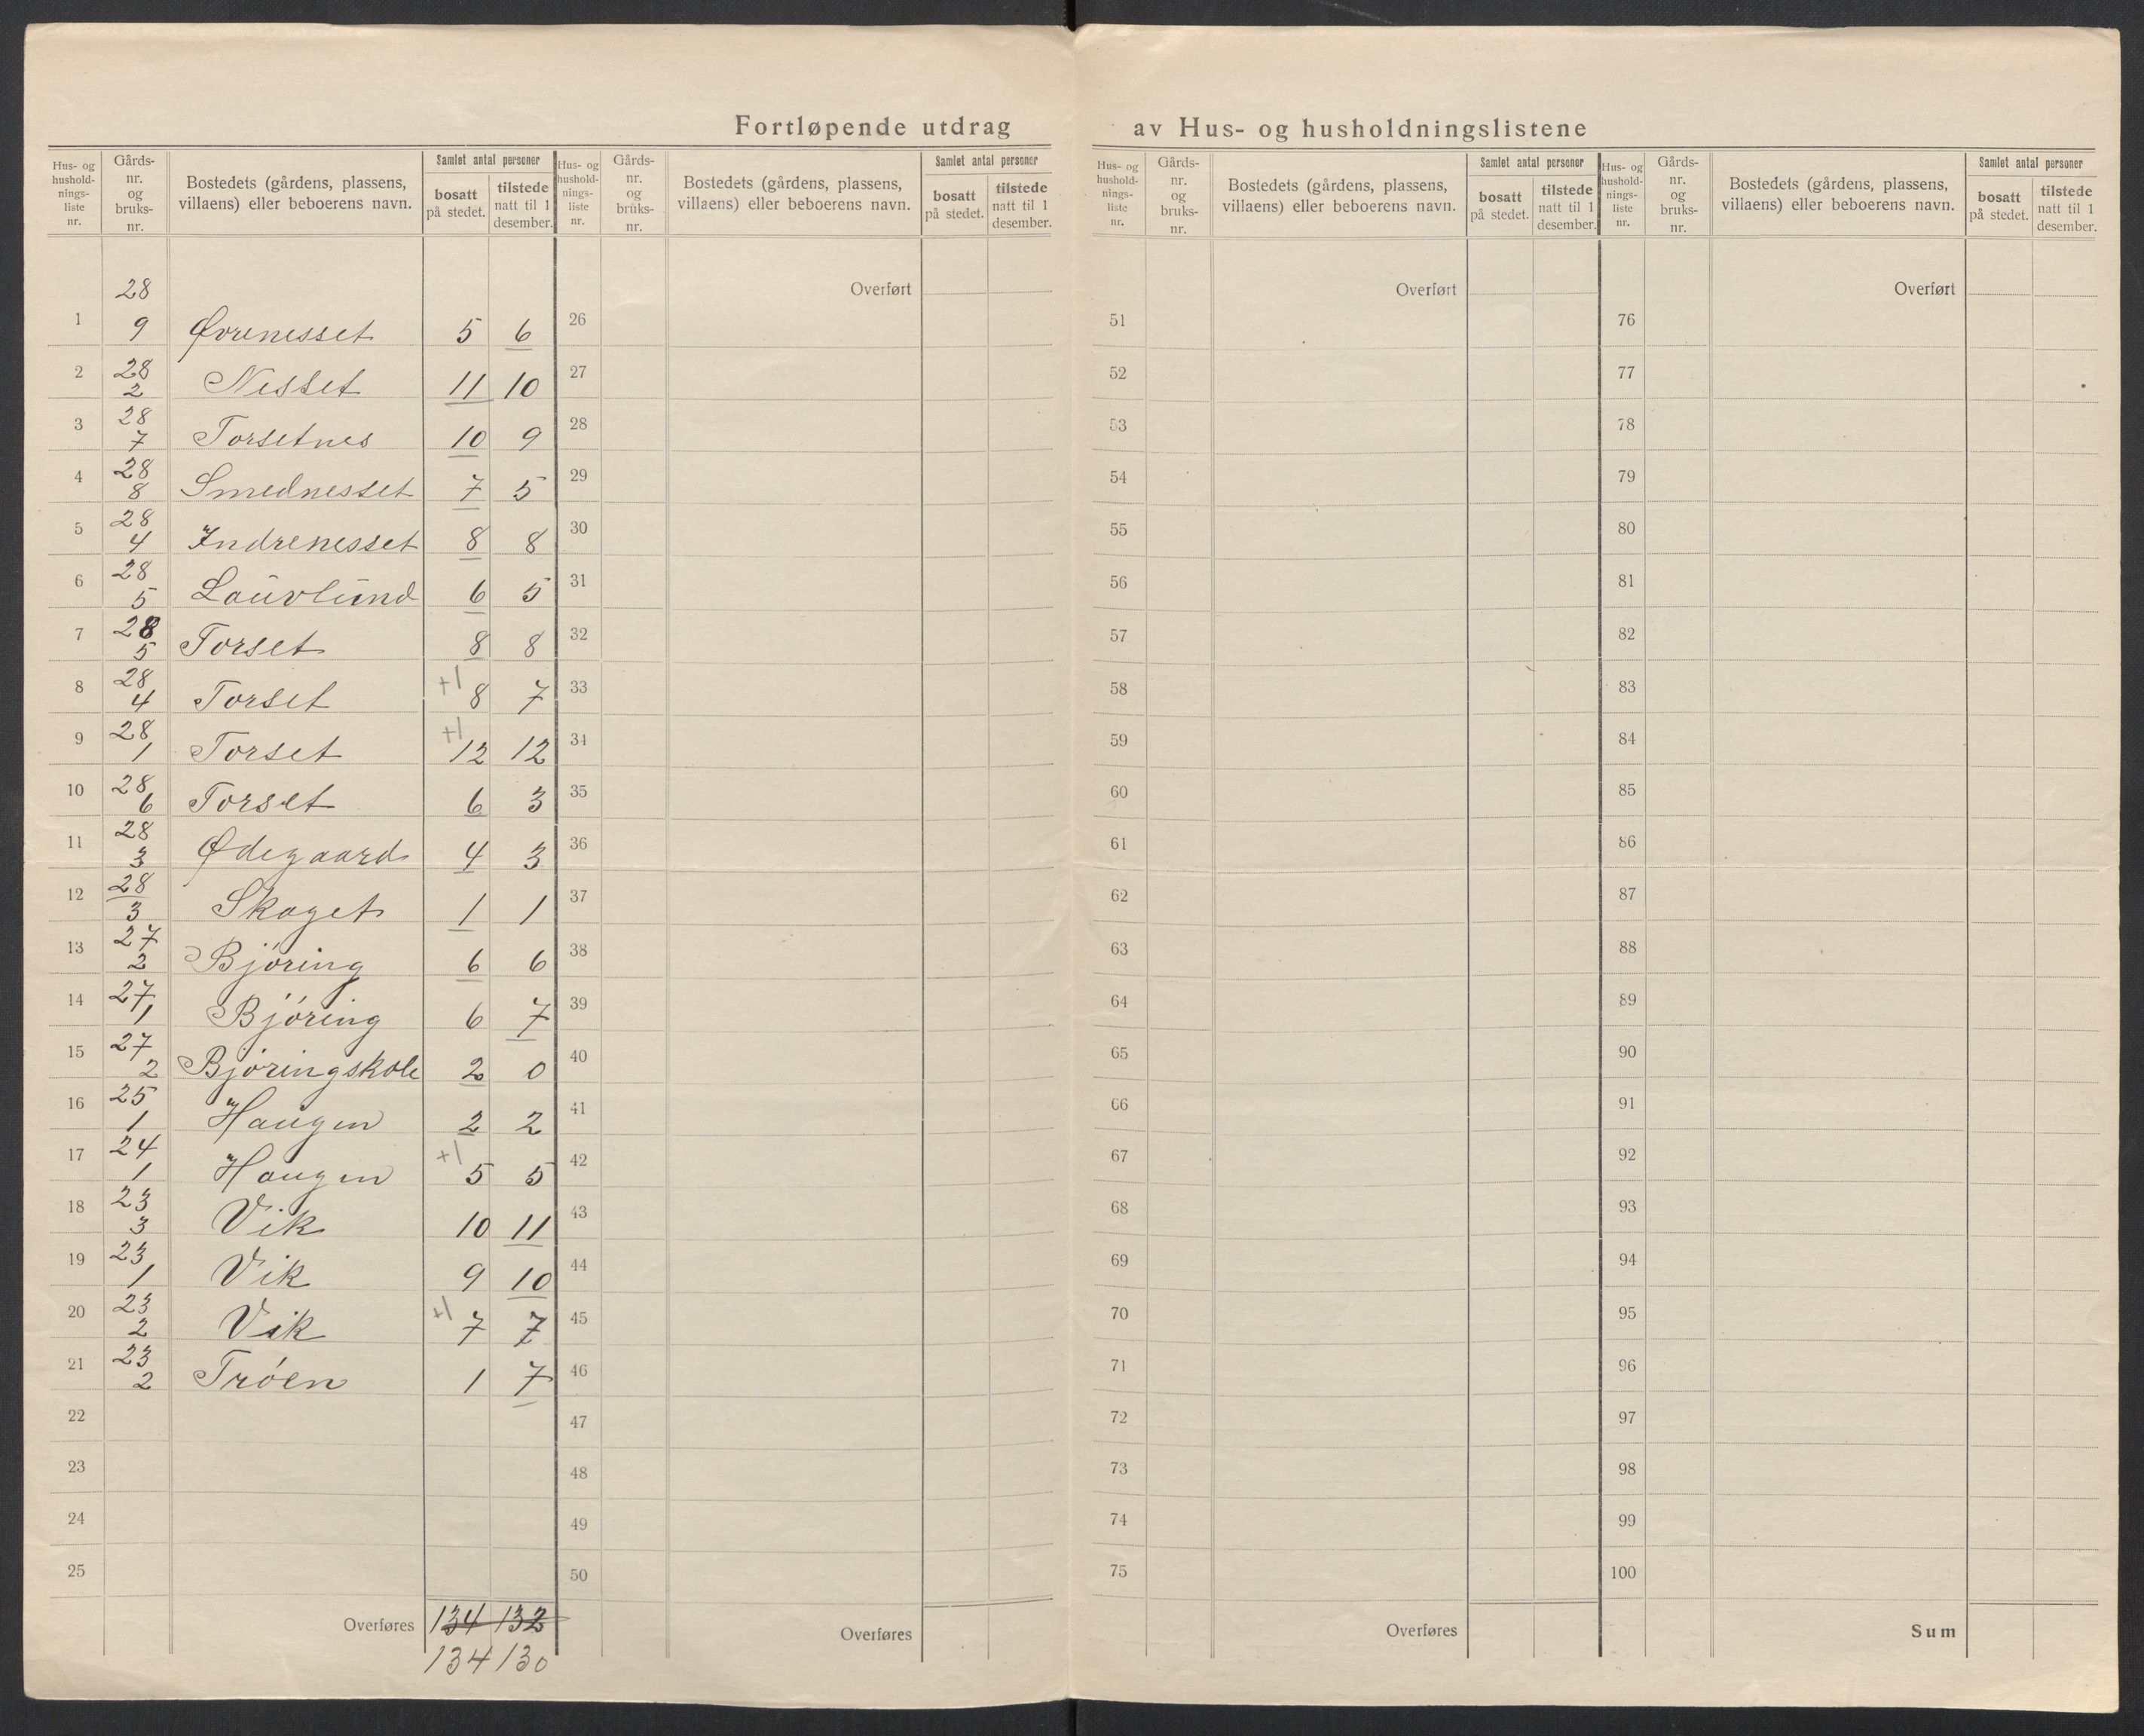 Fortløpende utdrag av Hus- og husholdningslistene
Hus- og hushold-nings-liste nr. | Gårds-nr. og bruks-nr. | Bostedets (gårdens, plassens, villaens) eller beboerens navn. | Samlet antal personer | bosatt på stedet. | tilstede natt til 1 desember.
1 28 9 Øvrenesset 5 6
2 28 2 Nesset 11 10
3 28 7 Torsetnes 10 9
4 28 8 Smednesset 7 5
5 28 4 Indrenesset 8 8
6 28 5 Lauvlund 6 5
7 28 5 Torset 8 8
8 28 4 Torset +1 8 7
9 28 1 Torset +1 12 12
10 28 6 Torset 6 3
11 28 3 Ødegaard 4 3
12 28 3 Skoget 1 1
13 27 2 Björing 6 6
14 27 1 Björing 6 7
15 27 2 Björingskole 2 0
16 25 1 Haugen 2 2
17 24 1 Haugen +1 5 5
18 23 3 Vik 10 11
19 23 1 Vik 9 10
20 23 2 Vik +1 7 7
21 23 2 Tröen 1 7
22
23
24
25
Overføres 134 132
134 130
Hus- og hushold-nings-liste nr. | Gårds-nr. og bruks-nr. | Bostedets (gårdens, plassens, villaens) eller beboerens navn. | Samlet antal personer | bosatt på stedet. | tilstede natt til 1 desember.
Overført
26
27
28
29
30
31
32
33
34
35
36
37
38
39
40
41
42
43
44
45
46
47
48
49
50
Overføres
Hus- og hushold-nings-liste nr. | Gårds-nr. og bruks-nr. | Bostedets (gårdens, plassens, villaens) eller beboerens navn. | Samlet antal personer | bosatt på stedet. | tilstede natt til 1 desember.
Overført
51
52
53
54
55
56
57
58
59
60
61
62
63
64
65
66
67
68
69
70
71
72
73
74
75
Overføres
Hus- og hushold-nings-liste nr. | Gårds-nr. og bruks-nr. | Bostedets (gårdens, plassens, villaens) eller beboerens navn. | Samlet antal personer | bosatt på stedet. | tilstede natt til 1 desember.
Overført
76
77
78
79
80
81
82
83
84
85
86
87
88
89
90
91
92
93
94
95
96
97
98
99
100
Sum